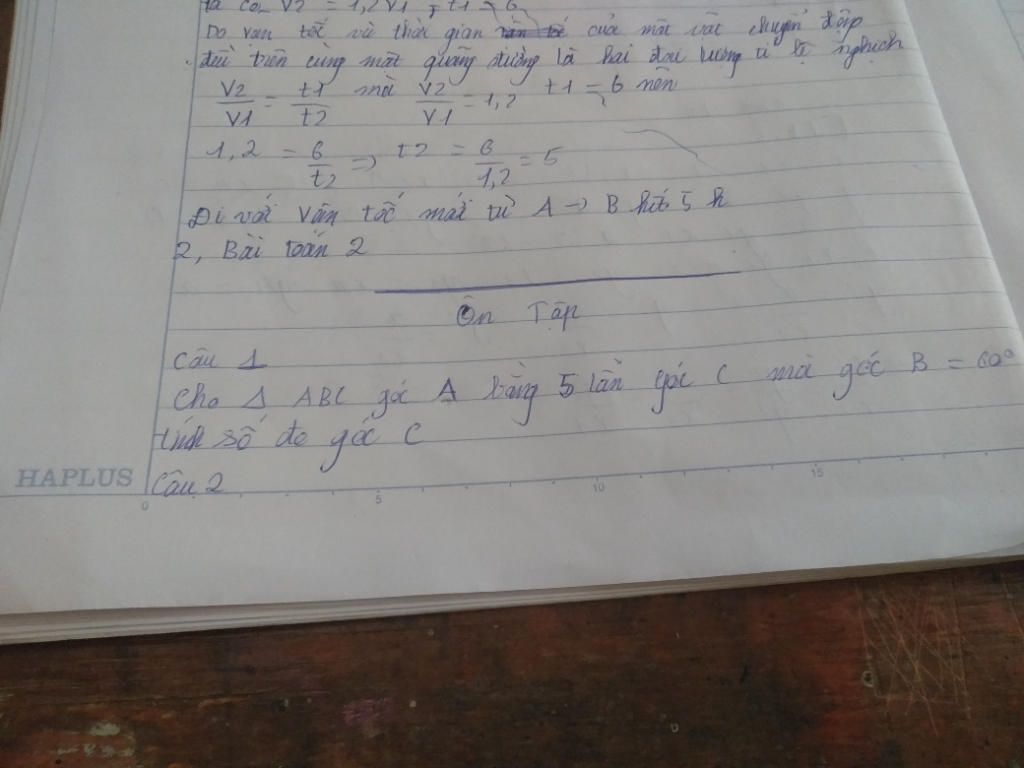 ta có V2 = 1,2 V1, t1 = 6
Do vận tốc và thời gian của một vật chuyển động
đều trên cùng một quãng đường là hai đại lượng tỉ lệ nghịch
V2/V1 = t1/t2 mà V2/V1 = 1,2 t1 = 6 nên
1,2 = 6/t2 => t2 = 6/1,2 = 5
Đi với vận tốc mới từ A -> B hết 5 h
2, Bài toán 2
Ôn Tập
Câu 1
Cho Δ ABC góc A bằng 5 lần góc C mà góc B = 60°
tính số đo góc C
HAPLUS
Câu 2
0 5 10 15